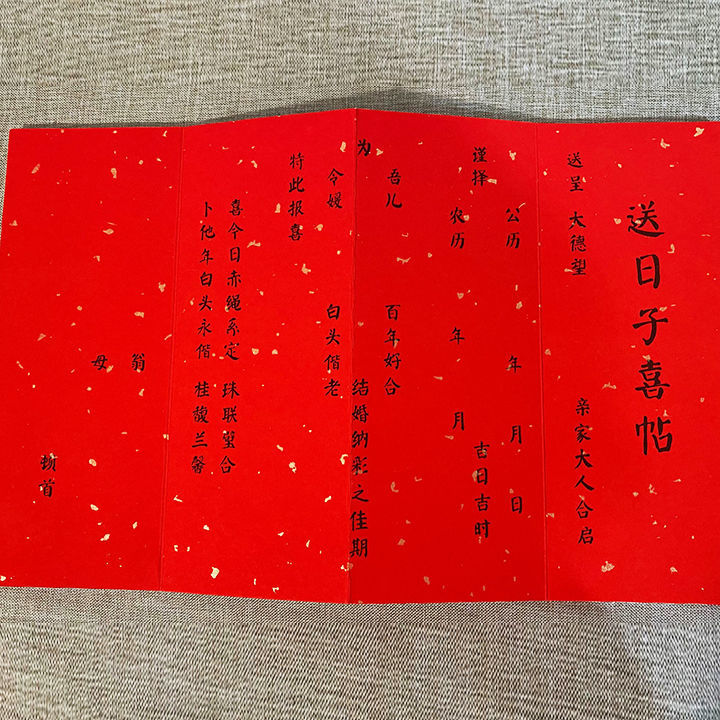 送日子喜帖
送呈 大德望 亲家大人合启
公历 年 月 日
谨择 农历 年 月 吉日吉时
吾儿 百年好合
为 结婚纳彩之佳期
令嫒 白头偕老
特此报喜
喜今日赤绳系定 珠联璧合
卜他年白头永偕 桂馥兰馨
翁
母
顿首